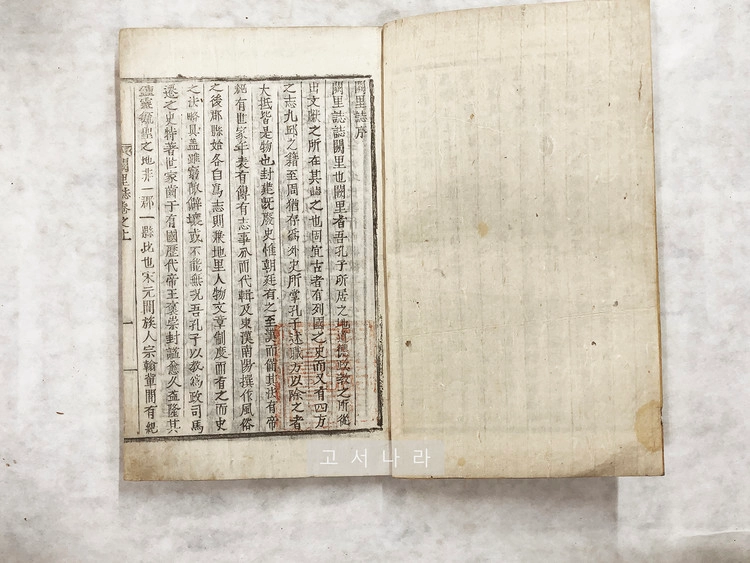 闕里誌序
闕里誌誌闕里也闕里者吾孔子所居之地道德政教之所從
出文獻之所在其誌之也固宜古者有列國之史而又有四方
之志九邱之籍至周猶存爲外史所掌孔子述職方以除之者
大抵皆是物也封建旣廢史惟朝廷有之至漢而備其法有帝
紀有世家年表有傳有志事分而代輯及東漢南陽撰作風俗
之後郡縣始各自爲志則兼地里人物文章制度而有之而史
之決略具盖雖窮陬僻壤或不能無況吾孔子以教爲政司馬
遷之史特著世家齒于有國歷代帝王褒崇封謚愈久益隆其
靈 之地非一郡一縣比也宋元間族人宗翰輩間有紀
闕里誌卷之上
一
고서나라